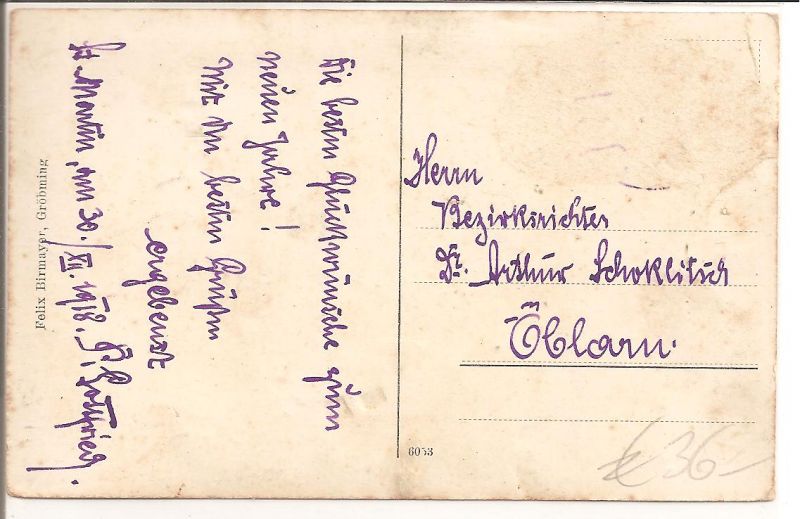 Die besten Glückwünsche zum
neuen Jahre!
Mit den besten Grüßen
ergebenst
St. Martin, am 30./XII. 1918. P. Gottfried.
Felix Birmayer, Gröbming
Herrn
Bezirksrichter
Dr. Arthur Schoklitsch
Öblarn.
6053
€ 36-